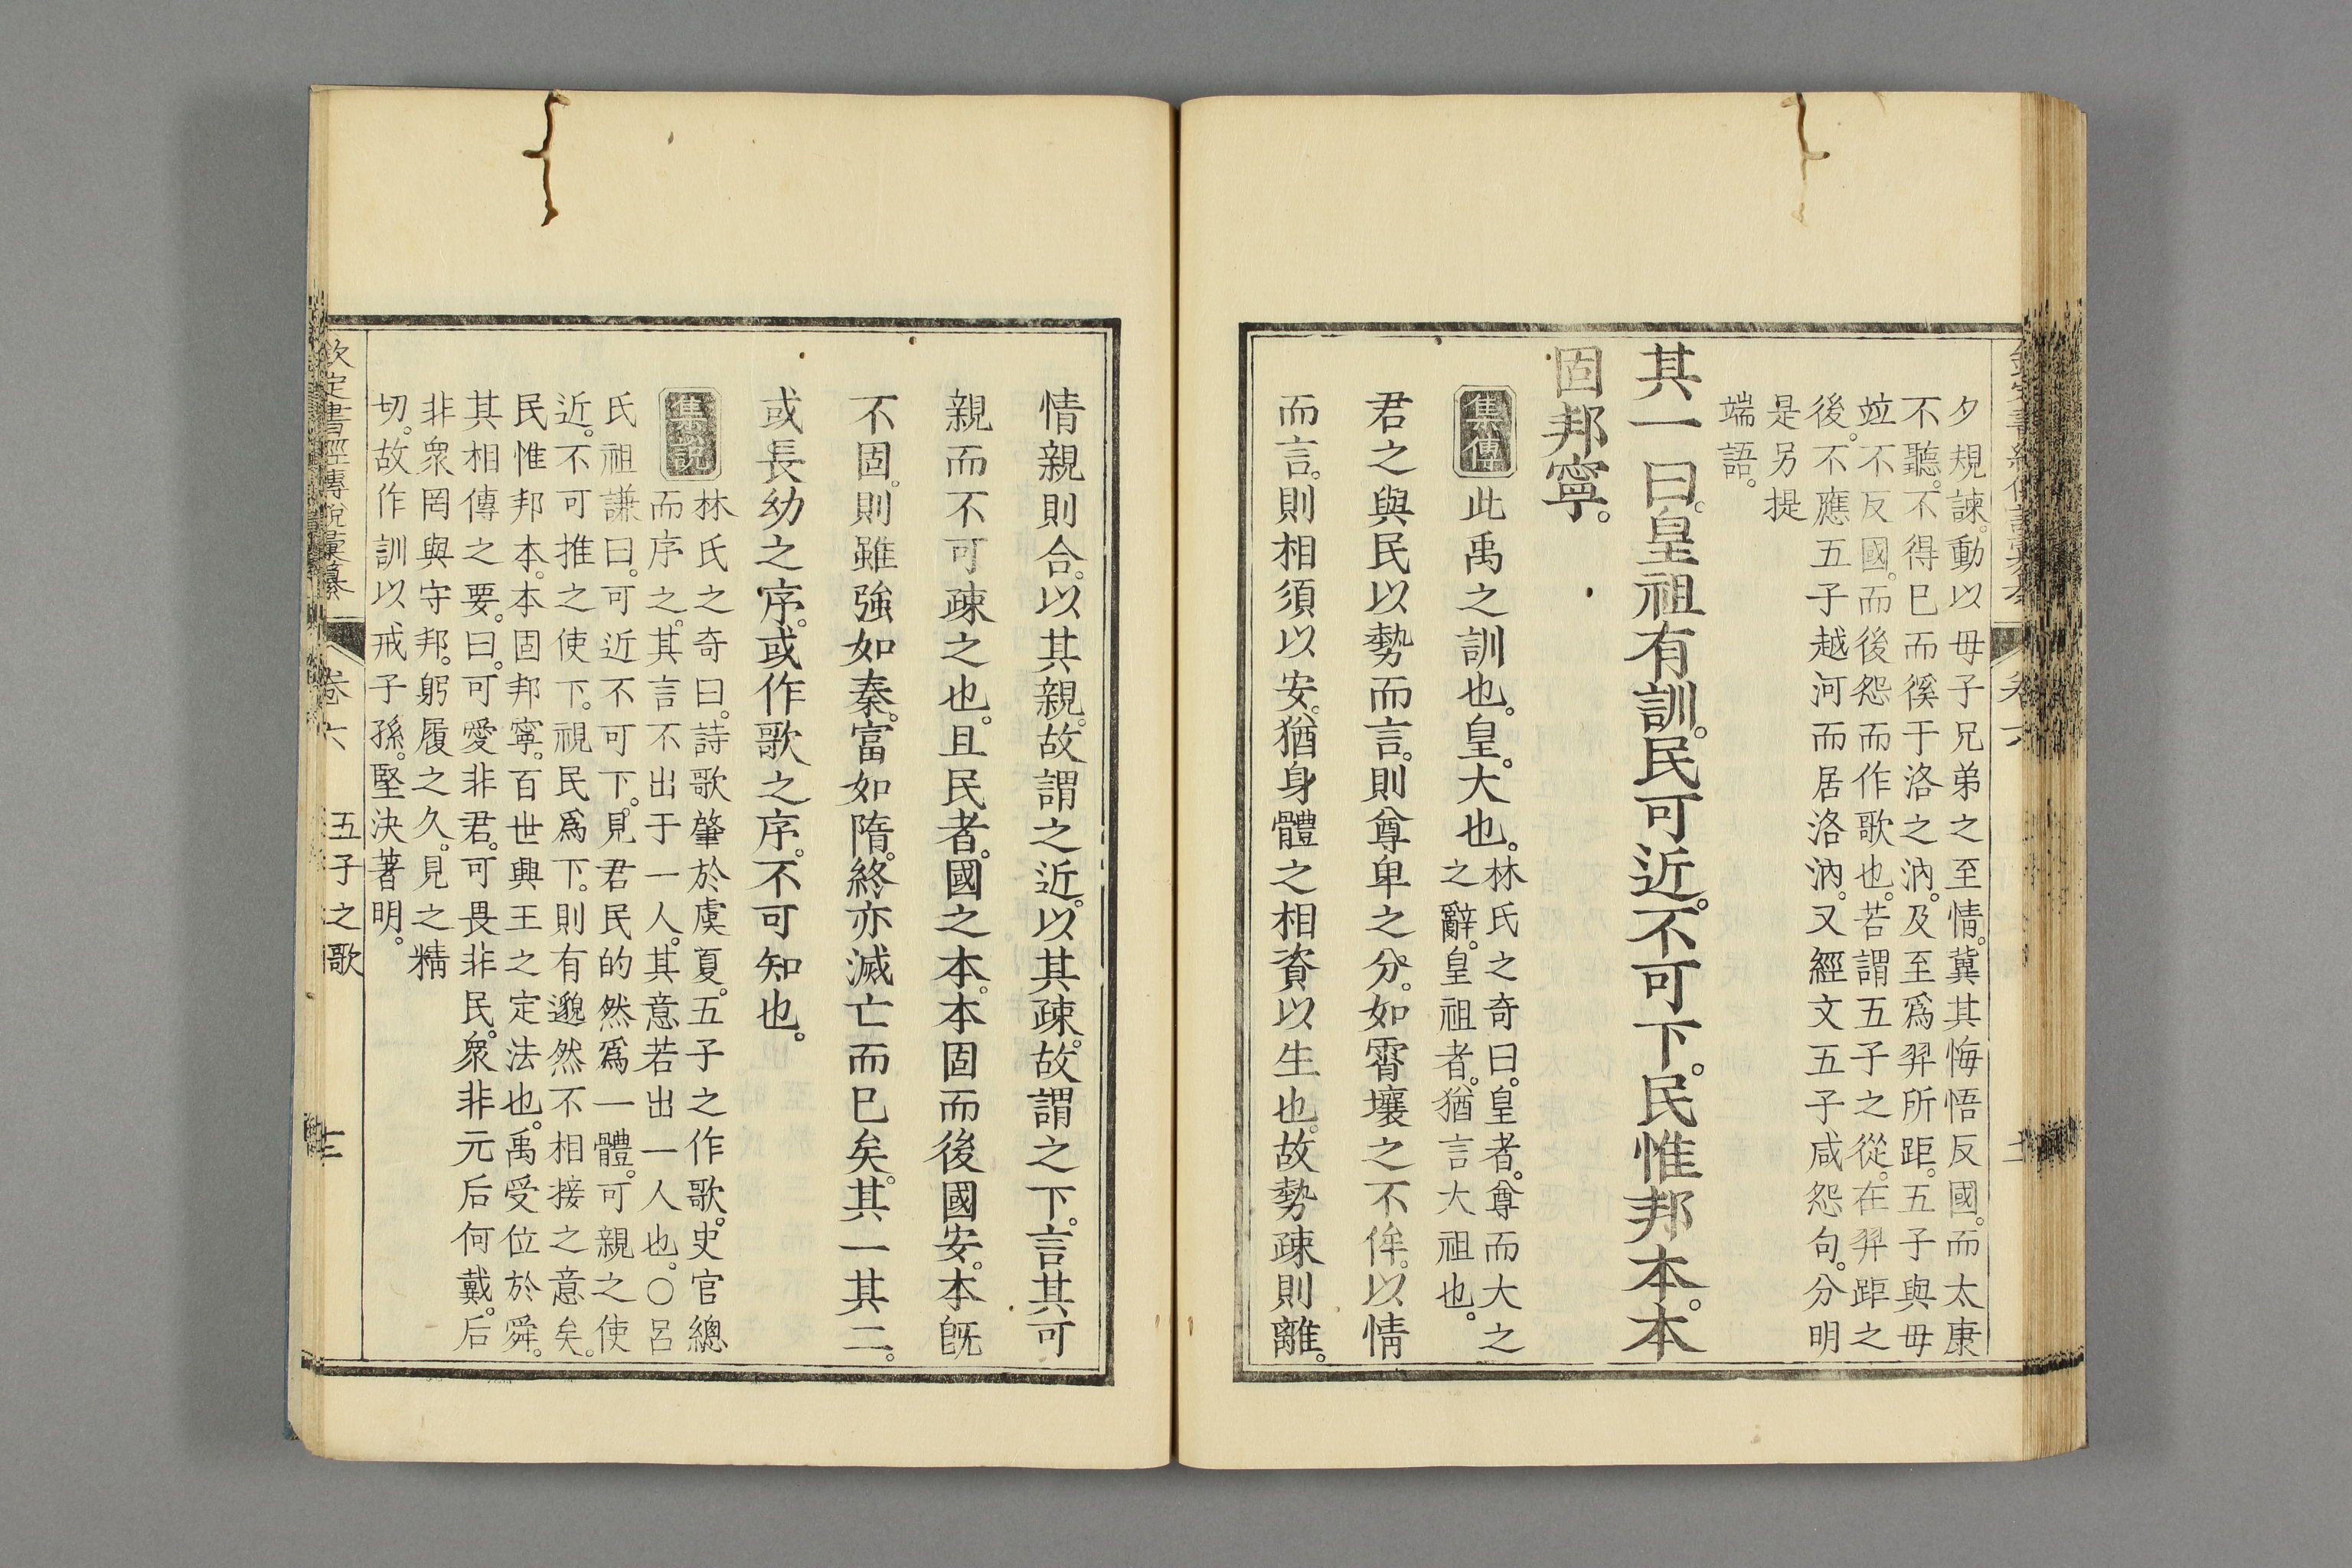 夕規諫。動以母子兄弟之至情。冀其悔悟反國。而太康
不聽。不得已而徯于洛之汭。及至爲羿所距。五子與母
竝不反國。而後怨而作歌也。若謂五子之從。在羿距之
後。不應五子越河而居洛汭。又經文五子咸怨句。分明
是另提
端語。
其一曰。皇祖有訓。民可近。不可下。民惟邦本。本
固邦寧。
集傳
此禹之訓也。皇。大也。
林氏之奇曰。皇者。尊而大之
之辭。皇祖者。猶言大祖也。
君之與民以勢而言。則尊卑之分。如霄壤之不侔。以情
而言。則相須以安。猶身體之相資以生也。故勢疎則離。
情親則合。以其親。故謂之近。以其疎。故謂之下。言其可
親而不可疎之也。且民者。國之本。本固而後國安。本旣
不固。則雖強如秦。富如隋。終亦滅亡而已矣。其一其二。
或長幼之序。或作歌之序。不可知也。
集說
林氏之奇曰。詩歌肇於虞夏。五子之作歌。史官總
而序之。其言不出于一人。其意若出一人也。○呂
氏祖謙曰。可近不可下。見君民的然爲一體。可親之使
近。不可推之使下。視民爲下。則有邈然不相接之意矣。
民惟邦本。本固邦寧。百世興王之定法也。禹受位於舜。
其相傳之要。曰。可愛非君。可畏非民。衆非元后何戴。后
非衆罔與守邦。躬履之久。見之精
切。故作訓以戒子孫。堅決著明。
欽定書經傳說彙纂
卷六
五子之歌